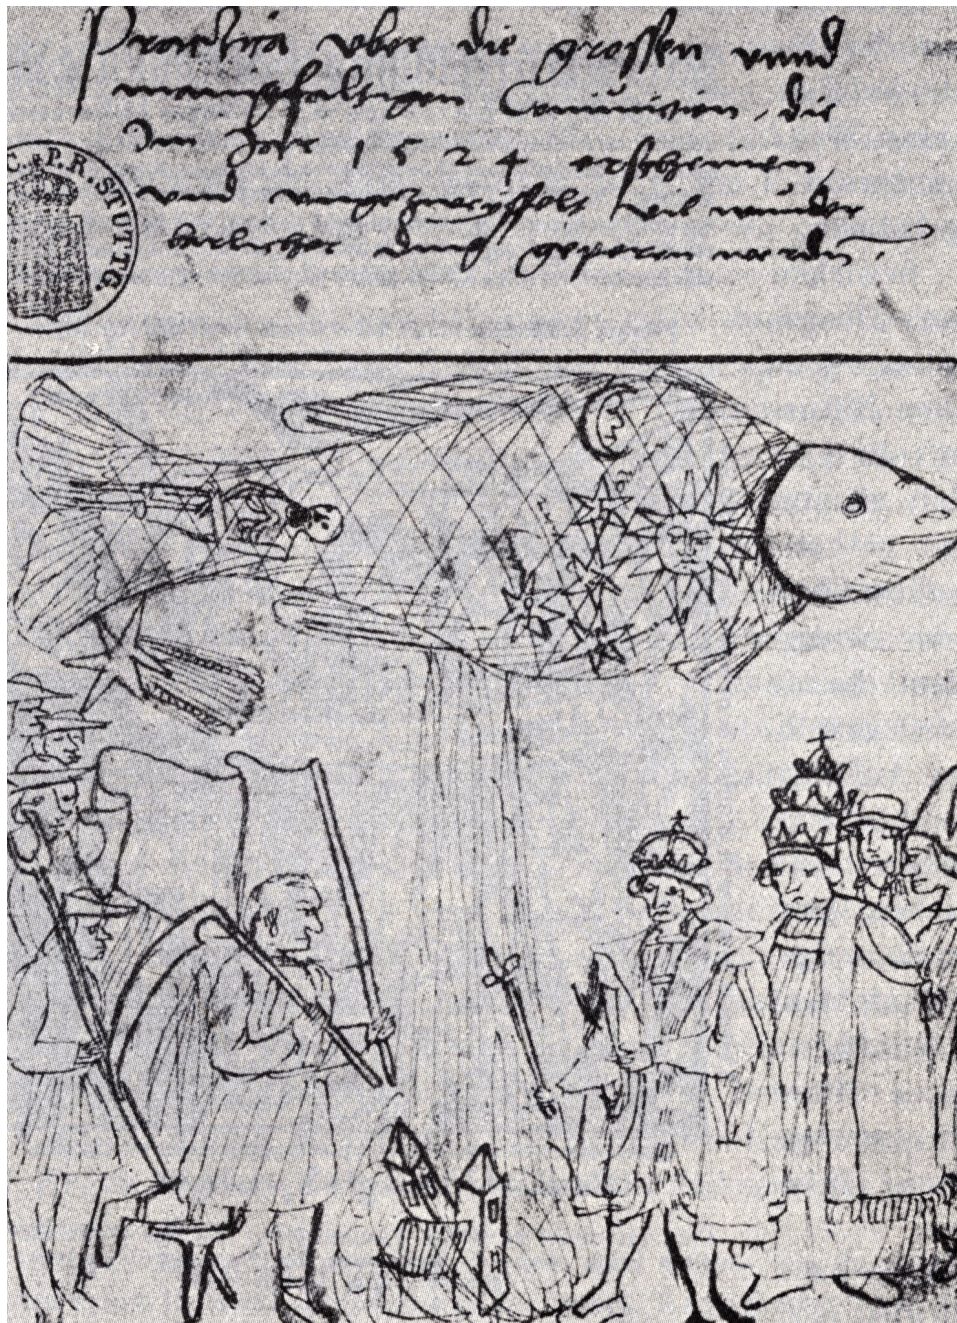 Practica vber die grossen vnnd
manigfaltigen Coniunction, die
Im Jare 1524 erscheinen
vnd vngezweyffelt vil wunder
barlicher ding geperen werden.
C. P. R. STUTTG.